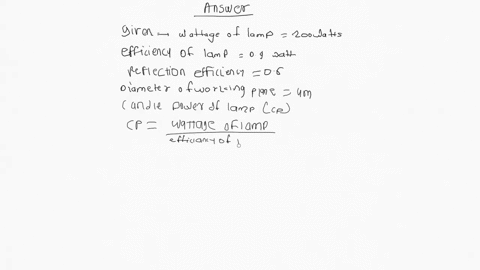 Answer
Given → wattage of lamp = 200 watts
efficiency of lamp = 0.9 watt
reflection efficiency = 0.6
Diameter of working plane = 4m
Candle power of lamp (CP)
CP = wattage of lamp
efficiency of